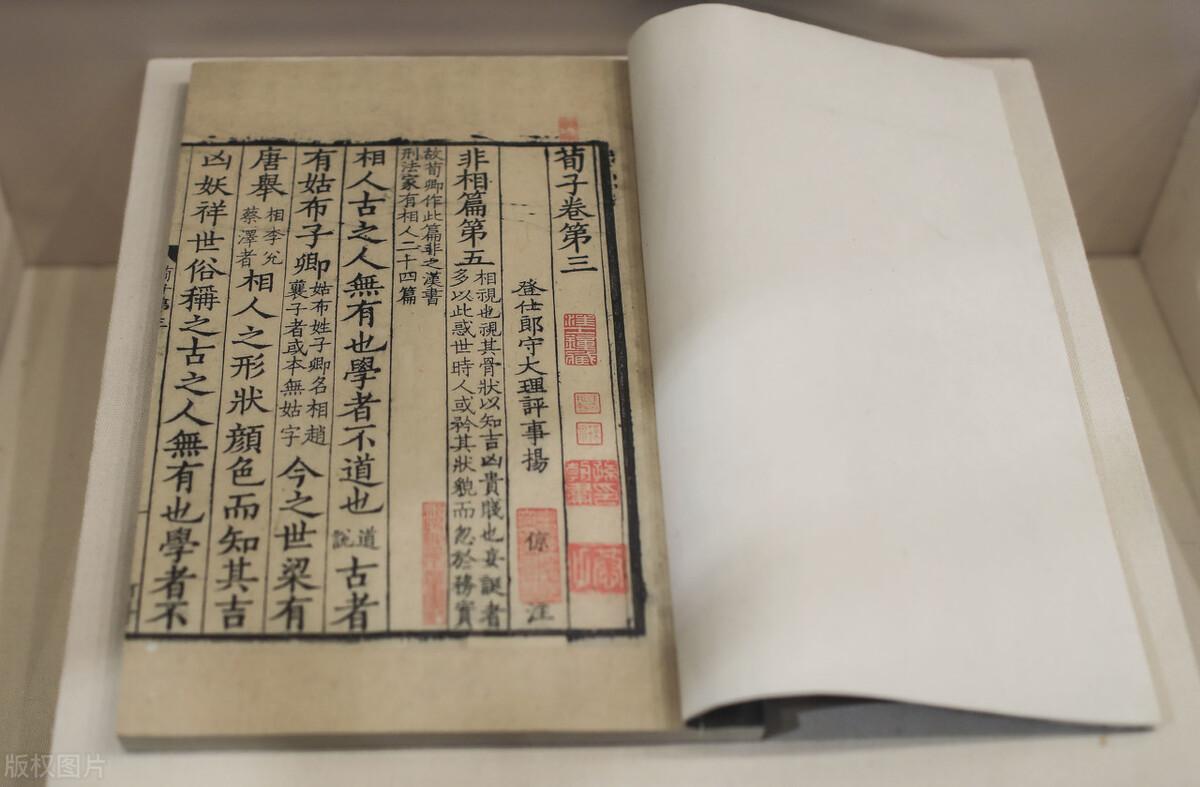 荀子卷第三
登仕郎守大理評事揚倞注
非相篇第五
相視也視其骨狀以知吉凶貴賤也妄誕者
多以此惑世時人或矜其狀貌而忽於務實
故荀卿作此篇非之漢書
刑法家有相人二十四篇
相人古之人無有也學者不道也
道
說
古者
有姑布子卿
姑布姓子卿名相趙
襄子者或本無姑字
今之世梁有
唐舉
相李兌
蔡澤者
相人之形狀顏色而知其吉
凶妖祥世俗稱之古之人無有也學者不
版权图片